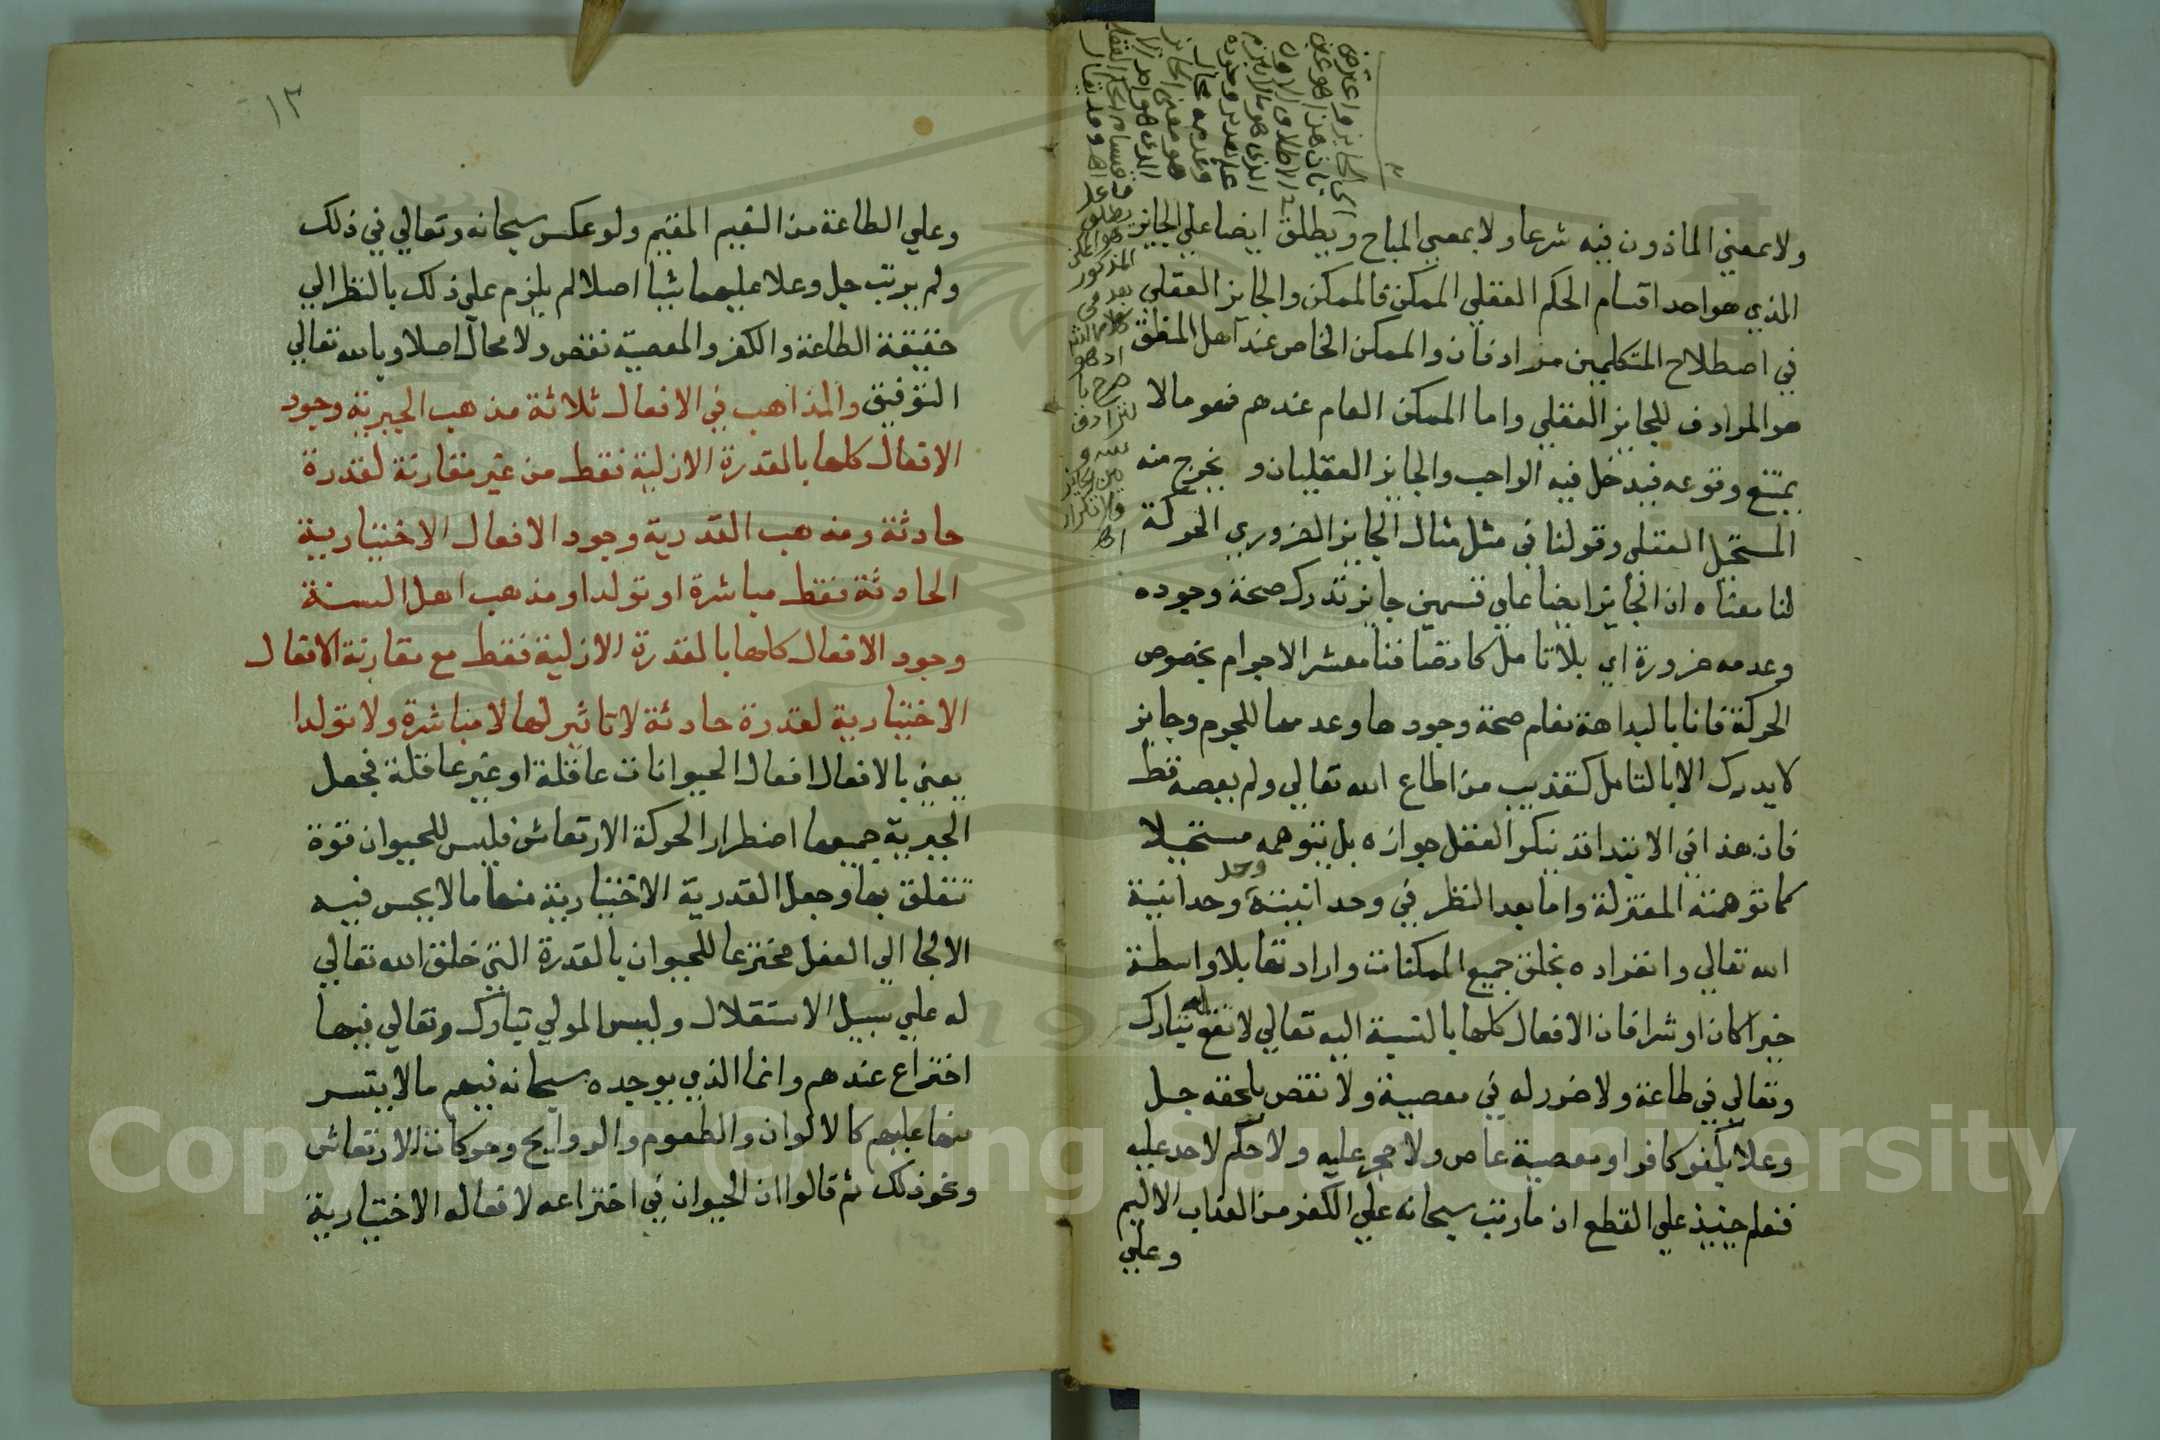 ولا بمعني الماذون فيه شرعا ولا بمعني المباح ويطلق ايضا علي الجايز
الذي هو احد اقسام الحكم العقلي الممكن فالممكن والجايز العقلي
في اصطلاح المتكلمين مترادفان والممكن الخاص عند اهل المنطق
هو المرادف للجايز العقلي واما الممكن العام عندهم فهو ما لا
يمتنع وقوعه فيدخل فيه الواجب والجايز العقليان و يخرج منه
المستحيل العقلي وقولنا في مثل مثال الجايز الضروري الحركة
لنا معناه ان الجايز ايضا علي قسمين جايز تدرك صحة وجوده
وعدمه ضرورة اي بلا تامل كاتصافنا معشر الاجرام بخصوص
الحركة فانا بالبداهة نعلم صحة وجودها وعدمها للجرم وجايز
لا يدرك الا بالتامل كتعذيب من اطاع الله تعالي ولم يعصه قط
فان هذا في الابتدا قد ينكر العقل جوازه بل يتوهمه مستحيلا
كما توهمته المعتزلة واما بعد النظر في وحدانيته وحدانية
وحد
الله تعالي وانفراده بخلق جميع الممكنات وارادتها بلا واسطة
خيرا كان او شرا فان الافعال كلها بالنسبة اليه تعالي لا نفع له تبارك
وتعالي في طاعة ولا ضرر له في معصية ولا نقص يلحقه جل
وعلا بكفر كافر او معصية عاص ولا حجر عليه ولا حكم لاحد عليه
فنعلم حينيذ علي القطع ان ما رتب سبحانه علي الكفر من العذاب الاليم
وعلي
اي الجايز واعترض
بان هذا هو عين
الاطلاق الاول
الذي هو ما لا يلزم
علي تقدير وجوده
وعدمه محال
هو معني الجايز
الذي هو احد
اقسام الحكم العقلي
يطلق علي
هو الممكن
المذكور
بعد في
اذ هو
صرح با
لترادف
بينه و
بين الجايز
فلا تكرار
اهـ
١٢
وعلي الطاعة من النعيم المقيم ولو عكس سبحانه وتعالي في ذلك
ولم يرتب جل وعلا عليهما شيا اصلا لم يلزم علي ذلك بالنظر الي
حقيقة الطاعة والكفر والمعصية نقص ولا محال اصلا وبالله تعالي
التوفيق والمذاهب في الافعال ثلاثة مذهب الجبرية وجود
الافعال كلها بالقدرة الازلية فقط من غير مقارنة لقدرة
حادثة ومذهب القدرية وجود الافعال الاختيارية
الحادثة فقط مباشرة او تولدا ومذهب اهل السنة
وجود الافعال كلها بالقدرة الازلية فقط مع مقارنة الافعال
الاختيارية لقدرة حادثة لا تاثير لها لا مباشرة ولا تولدا
يعني بالافعال افعال الحيوانات عاقلة او غير عاقلة فجعل
الجبرية جميعها اضطرار الحركة الارتعاش فليس للحيوان قوة
تتعلق بها وجعل القدرية الاختيارية منها ما لا يحس فيه
الالجا الي الفعل مخترعا للحيوان بالقدرة التي خلق الله تعالي
له علي سبيل الاستقلال وليس المولي تبارك وتعالي فيها
اختراع عندهم وانما الذي يوجده سبحانه فيهم ما لا يتيسر
منها عليهم كالالوان والطعوم والروايح وحركات الارتعاش
ونحو ذلك ثم قالوا ان الحيوان في اختراعه لافعاله الاختيارية
Copyright © King Saud University